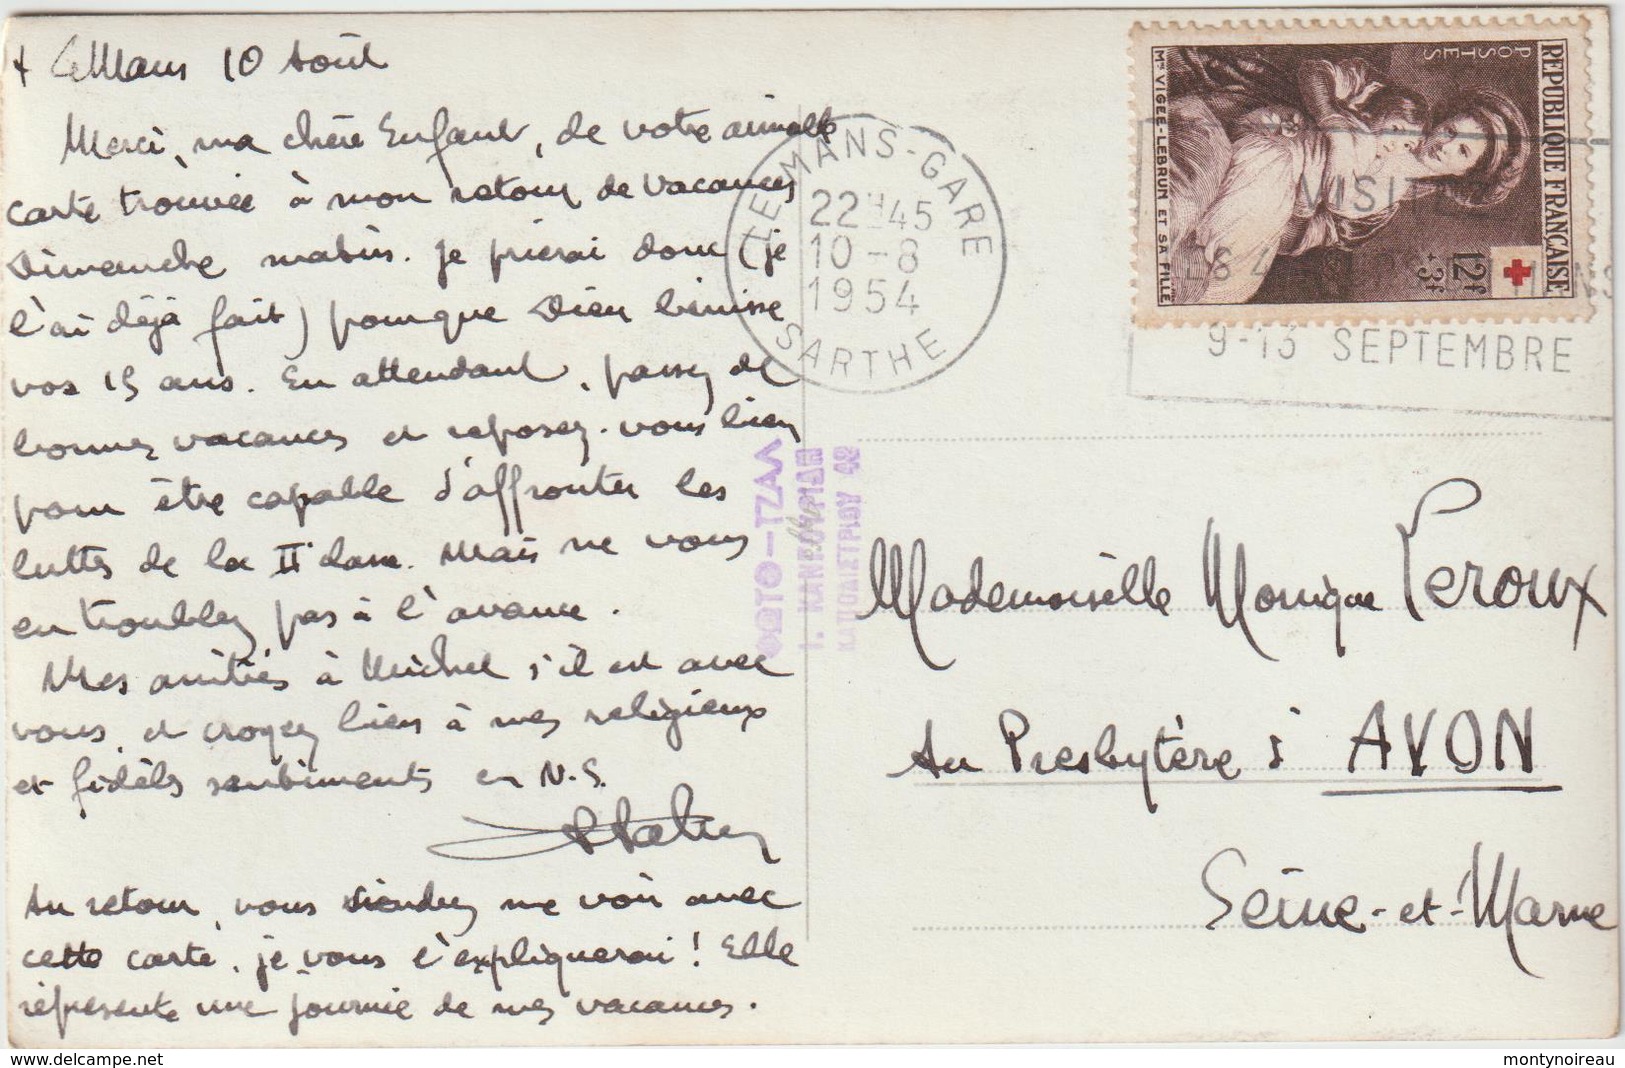 + Le Mans 10 Août
Merci, ma chère Enfant, de votre aimable
carte trouvée à mon retour de vacances
Dimanche matin. Je prierai donc (je
l'ai déjà fait) pour que Dieu bénisse
vos 15 ans. En attendant, passez de
bonnes vacances et reposez-vous bien
pour être capable d'affronter les
luttes de la IIe. Mais ne vous
en troublez pas à l'avance.
Mes amitiés à Michel s'il est avec
vous, et croyez bien à mes religieux
et fidèles sentiments en N.S.
Au retour, vous viendrez me voir avec
cette carte, je vous l'expliquerai! Elle
représente une journée de mes vacances.
LE MANS-GARE
22H45
10-8
1954
SARTHE
REPUBLIQUE FRANÇAISE
POSTES
12f
+3f
Mme VIGEE-LEBRUN ET SA FILLE
VISITEZ
9-13 SEPTEMBRE
ΦΩΤΟ—ΤΖΑΛ
ΚΑΠΟΔΙΣΤΡΙΟΥ 42
Mademoiselle Monique Peroux
Au Presbytère d'AVON
Seine-et-Marne
http://www.delcampe.net
montynoireau